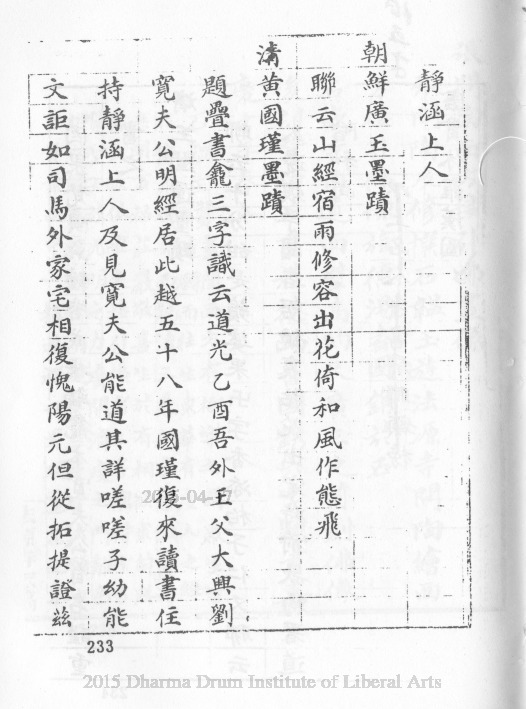 靜涵上人
朝鮮廣玉墨蹟
聯云山經宿雨修容出花倚和風作態飛
清黃國瑾墨蹟
題疊書龕三字識云道光乙酉吾外王父大興劉
寬夫公明經居此越五十八年國瑾復來讀書住
持靜涵上人及見寬夫公能道其詳嗟嗟子幼能
文詎如司馬外家宅相復愧陽元但從拓提證茲
233
2015 Dharma Drum Institute of Liberal Arts